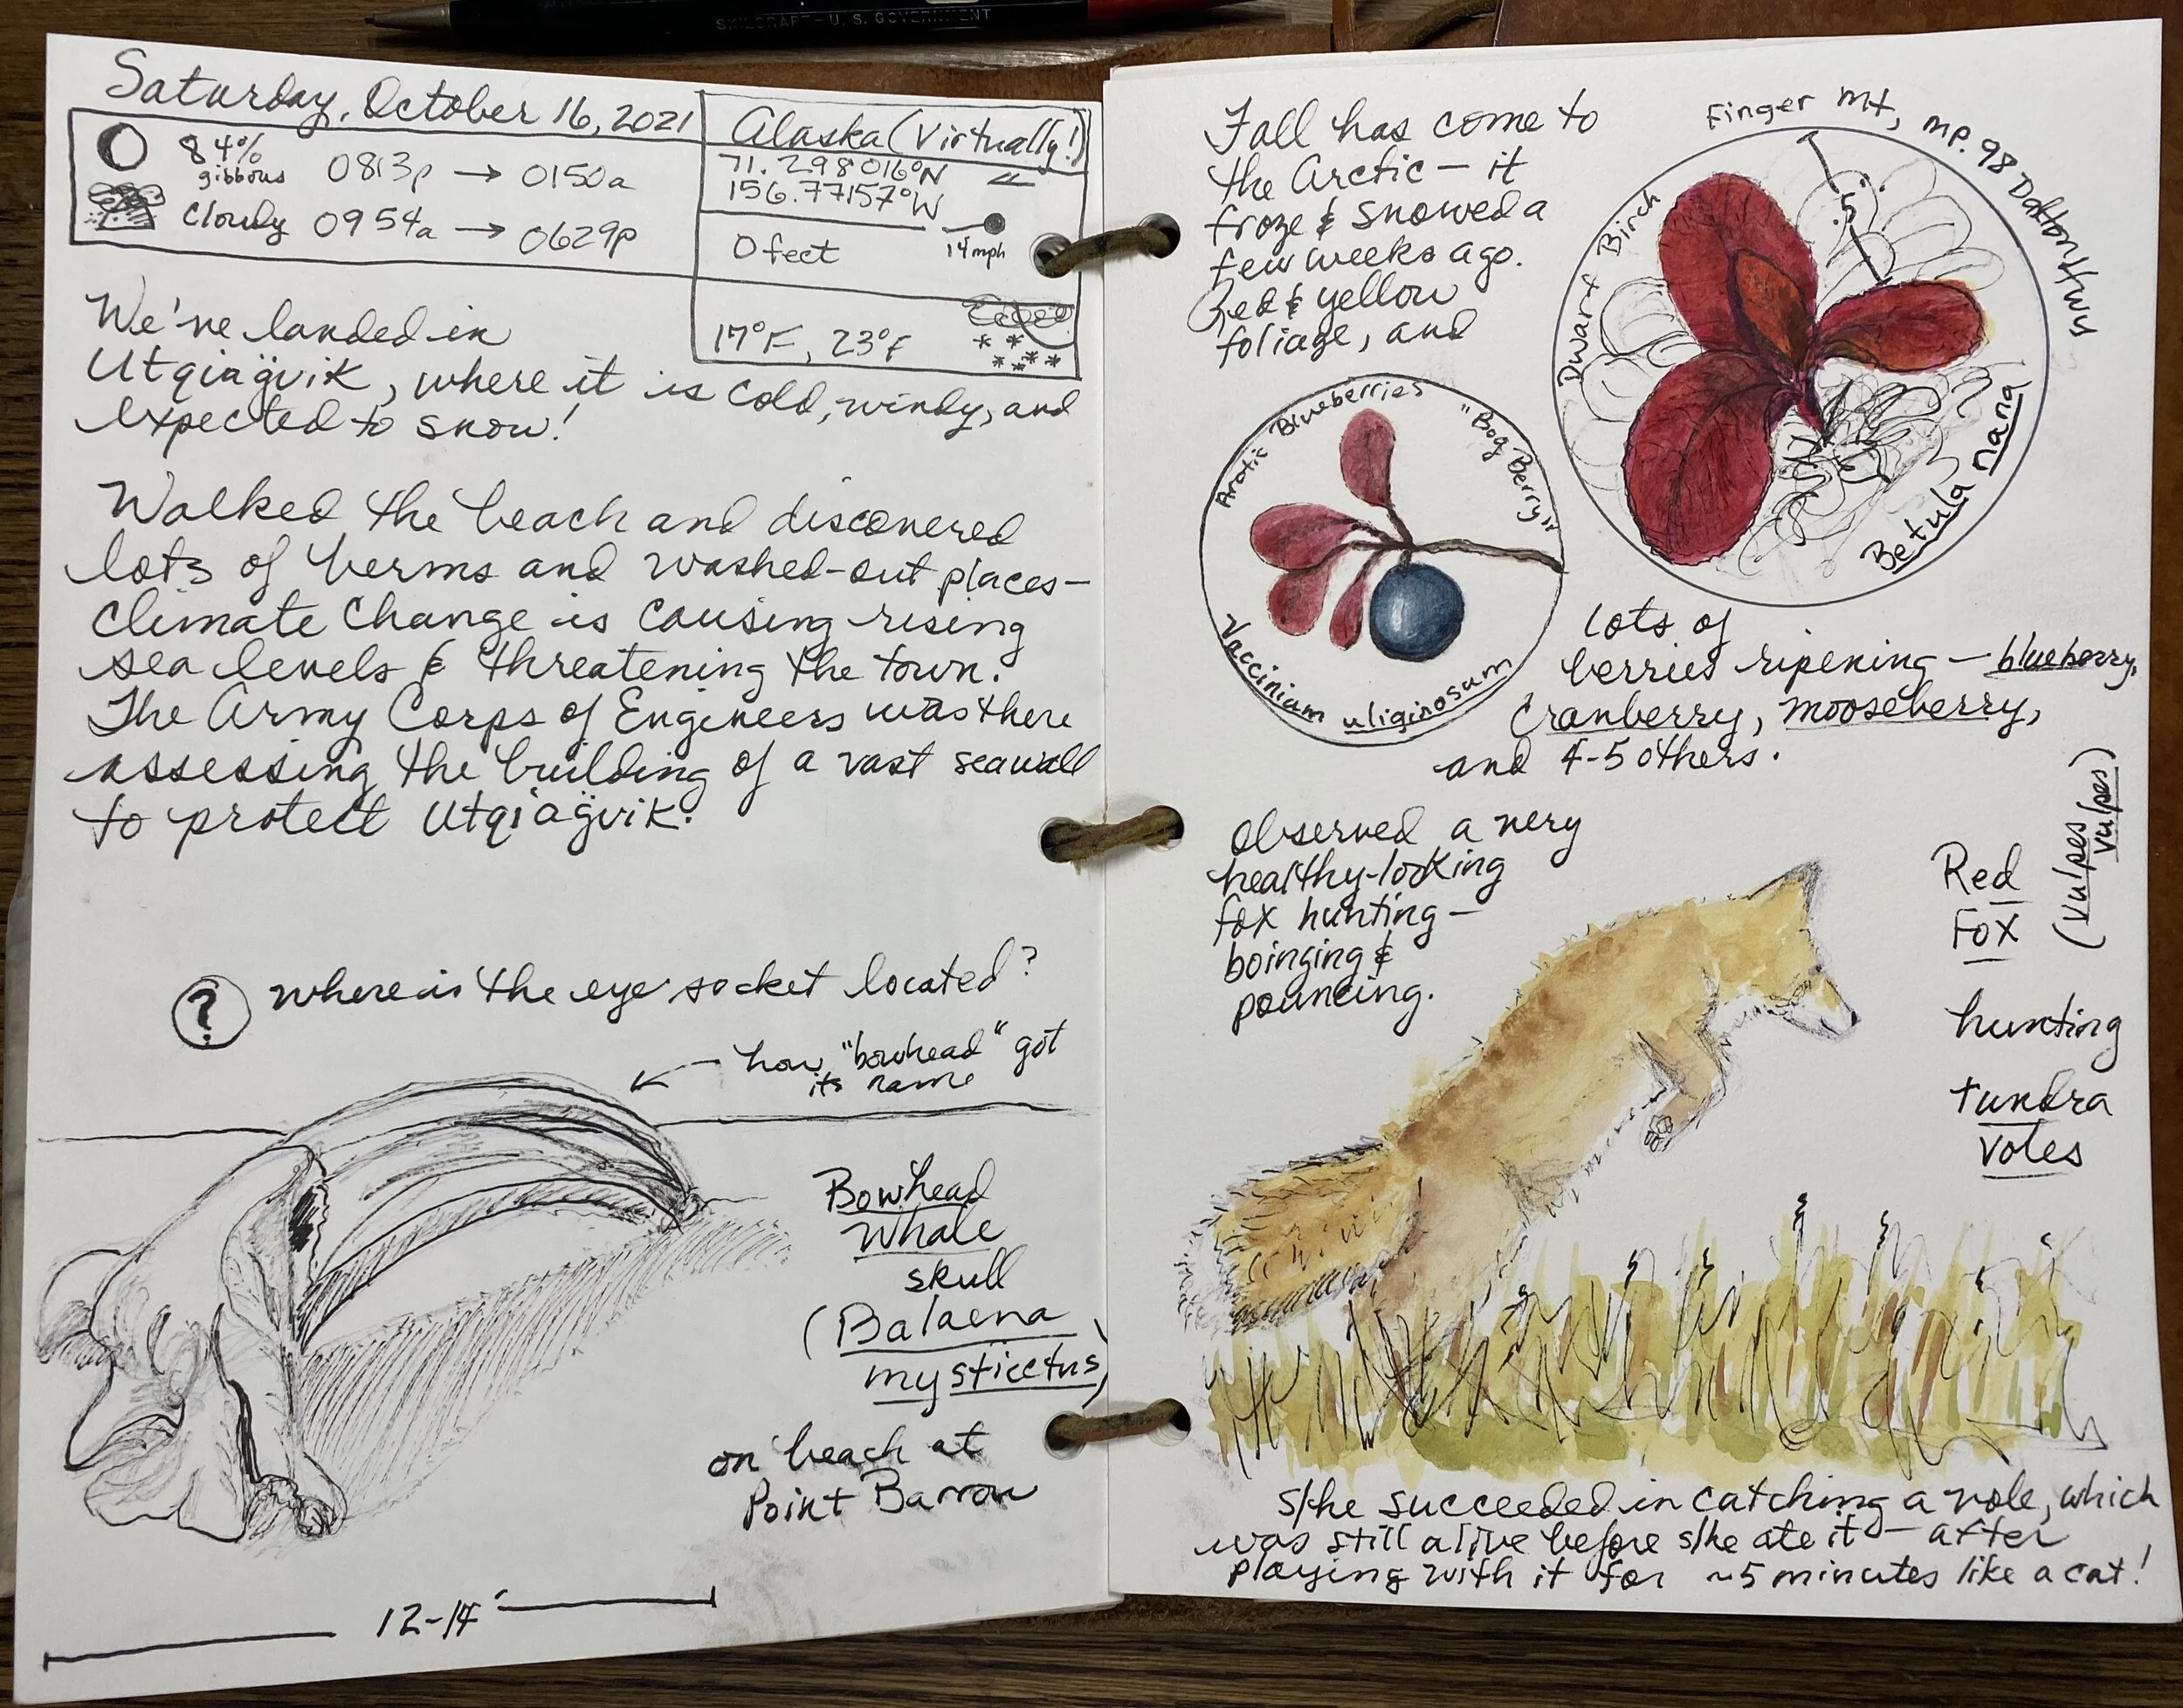 SKILCRAFT — U.S. GOVERNMENT
Saturday, October 16, 2021
84% gibbous 0813p → 0150a
Cloudy 0954a → 0629p
Alaska (Virtually!)
71.298016°N
156.77157°W
0 feet
14 mph
17°F, 23°F
We've landed in
Utqiaġvik, where it is cold, windy, and
expected to snow!
Walked the beach and discovered
lots of berms and washed-out places—
climate change is causing rising
sea levels & threatening the town.
The Army Corps of Engineers was there
assessing the building of a vast seawall
to protect Utqiaġvik.
? where is the eye socket located?
← how "bowhead" got
its name
Bowhead
Whale
skull
(Balaena
mysticetus)
on beach at
Point Barrow
12-14'
Fall has come to
the Arctic — it
froze & snowed a
few weeks ago.
Red & yellow
foliage, and
Finger Mt, mp. 98 Dalton Hwy
Dwarf Birch
.5"
Betula nana
Arctic Blueberries
"Bog Berry"
Vaccinium uliginosum
lots of
berries ripening — blueberry,
cranberry, mooseberry,
and 4-5 others.
Observed a very
healthy-looking
fox hunting —
boinging &
pouncing.
Red
Fox
(Vulpes
vulpes)
hunting
tundra
voles
s/he succeeded in catching a vole, which
was still alive before s/he ate it — after
playing with it for ~5 minutes like a cat!